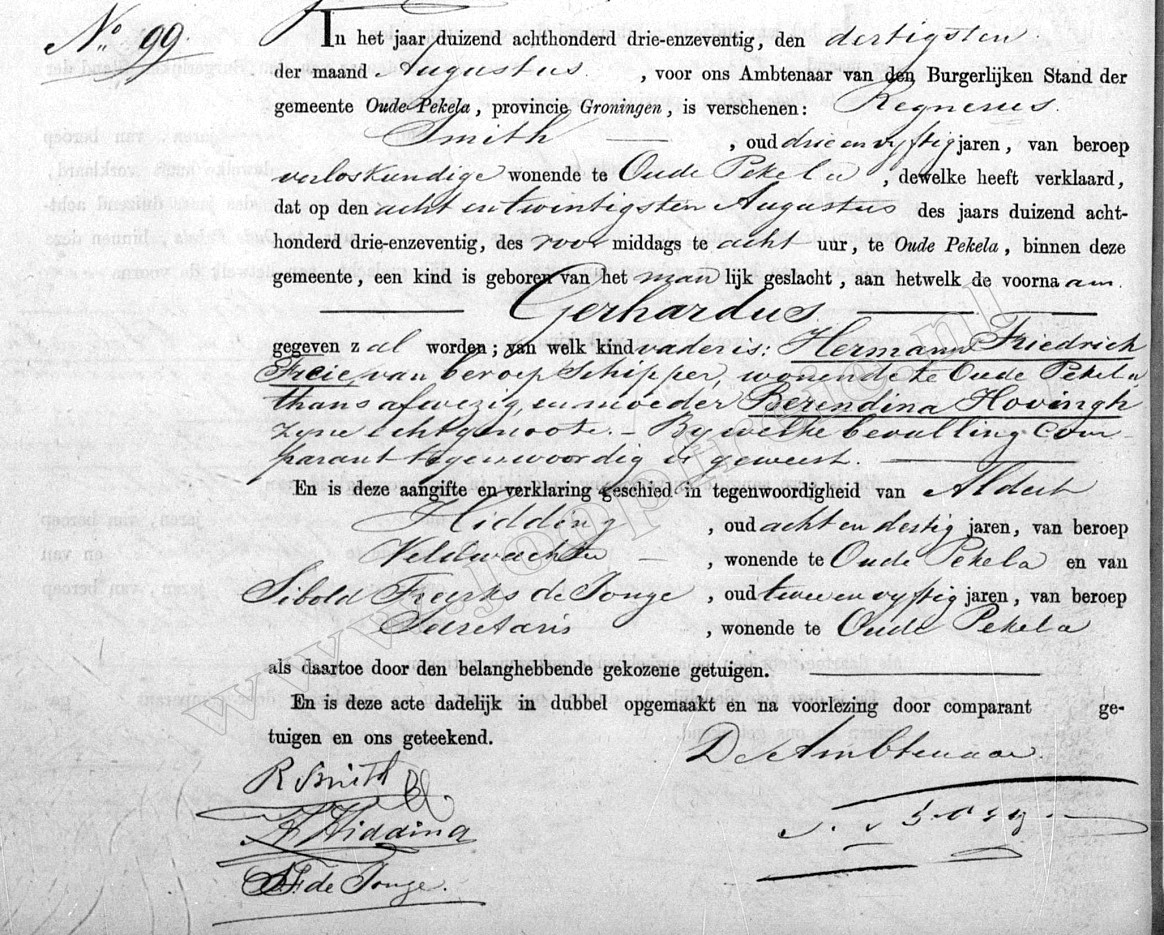 No. 99.
In het jaar duizend achthonderd drie-enzeventig, den dertigsten
der maand Augustus , voor ons Ambtenaar van den Burgerlijken Stand der
gemeente Oude Pekela, provincie Groningen, is verschenen: Regnerus
Smith , oud drie en vyftig jaren, van beroep
verloskundige wonende te Oude Pekela , dewelke heeft verklaard,
dat op den acht en twintigsten Augustus des jaars duizend acht-
honderd drie-enzeventig, des voor middags te acht uur, te Oude Pekela, binnen deze
gemeente, een kind is geboren van het man lijk geslacht, aan hetwelk de voorna am
Gerhardus.
gegeven z al worden; van welk kind vader is: Hermann Friedrich
Freie, van beroep Schipper, wonende te Oude Pekela
thans afwezig, en moeder Berendina Hovingh
zyne echtgenoote. – By welke bevalling Com-
parant tegenwoordig is geweest.
En is deze aangifte en verklaring geschied in tegenwoordigheid van Aldert
Hidding , oud acht en dertig jaren, van beroep
Veldwachter , wonende te Oude Pekela en van
Sibold Freerks de Jonge , oud twee en vyftig jaren, van beroep
Secretaris , wonende te Oude Pekela
als daartoe door den belanghebbende gekozene getuigen.
En is deze acte dadelijk in dubbel opgemaakt en na voorlezing door comparant ge-
tuigen en ons geteekend.
De Ambtenaar
R Smith
A Hidding
S F de Jonge.